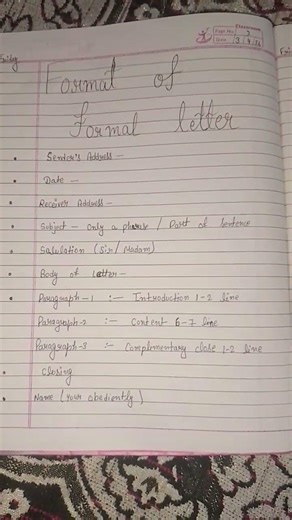 Page No.: 3
Date:
Format of
Formal letter
Sender's Address –
Date –
Receiver Address –
Subject – Only a phrase / Part of Sentence
Salulation (Sir/Madam)
Body of Letter –
Paragraph – 1 :– Introduction 1-2 line
Paragraph-2 :– Content 6-7 line
Paragraph-3 :– Complementary close 1-2 line
Closing
Name (Your obediently)